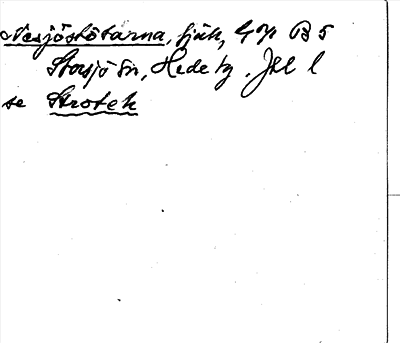 Nesjöstötarna, fjäll, 47 B 5
Storsjö sn, Hede tg. Jtl l
se Stroteh